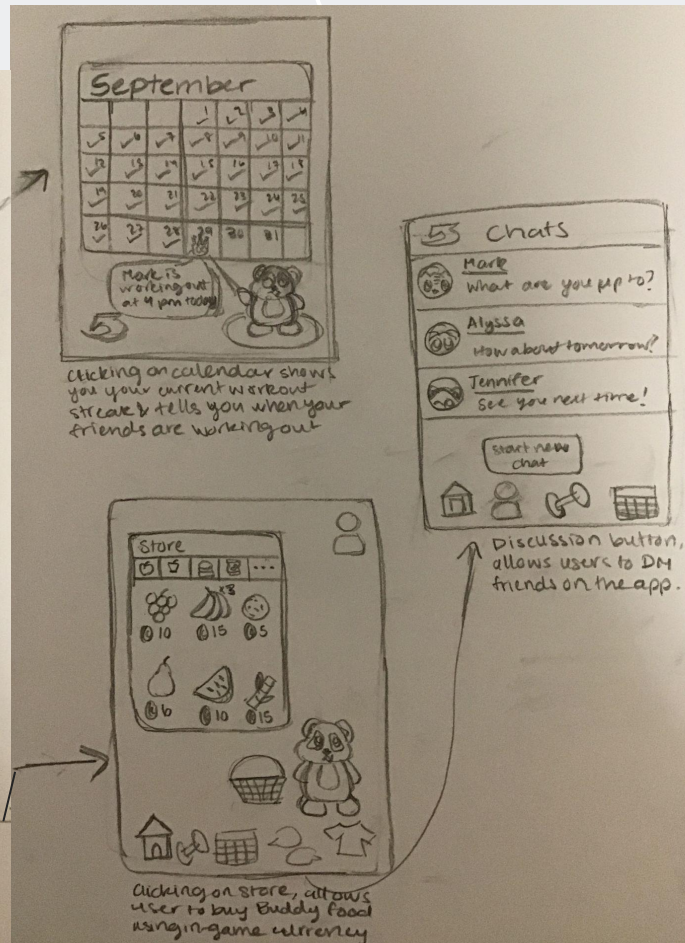 September
1 2 3 4
5 6 7 8 9 10 11
12 13 14 15 16 17 18
19 20 21 22 23 24 25
26 27 28 29 30 31
Mark is
working out
at 4 pm today
Clicking on calendar shows
you your current workout
streak & tells you when your
friends are working out
Chats
Mark
What are you up to?
Alyssa
How about tomorrow?
Jennifer
See you next time!
start new
chat
Discussion button,
allows users to DM
friends on the app.
Store
...
x3
10 15 5
6 10 15
Clicking on store, allows
user to buy Buddy food
using in-game currency